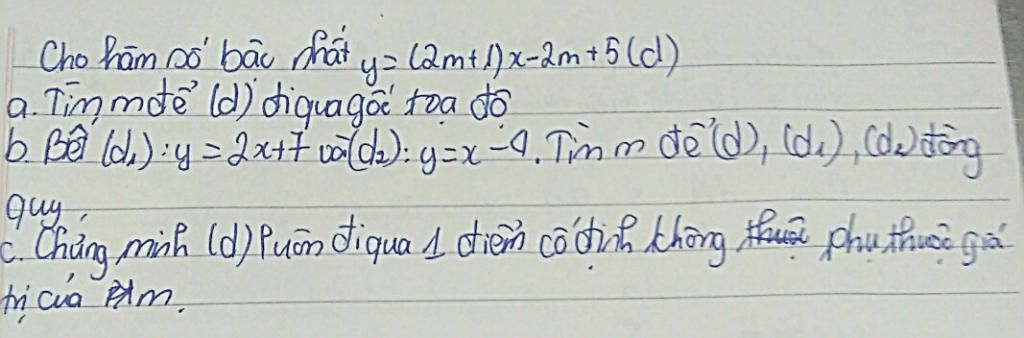 Cho hàm số bậc nhất y = (2m+1)x-2m+5 (d)
a. Tìm m để (d) đi qua gốc tọa độ
b. Biết (d₁): y = 2x+7 và (d₂): y=x-9. Tìm m để (d), (d₁), (d₂) đồng
quy.
c. Chứng minh (d) luôn đi qua 1 điểm cố định không phụ thuộc giá
trị của m.